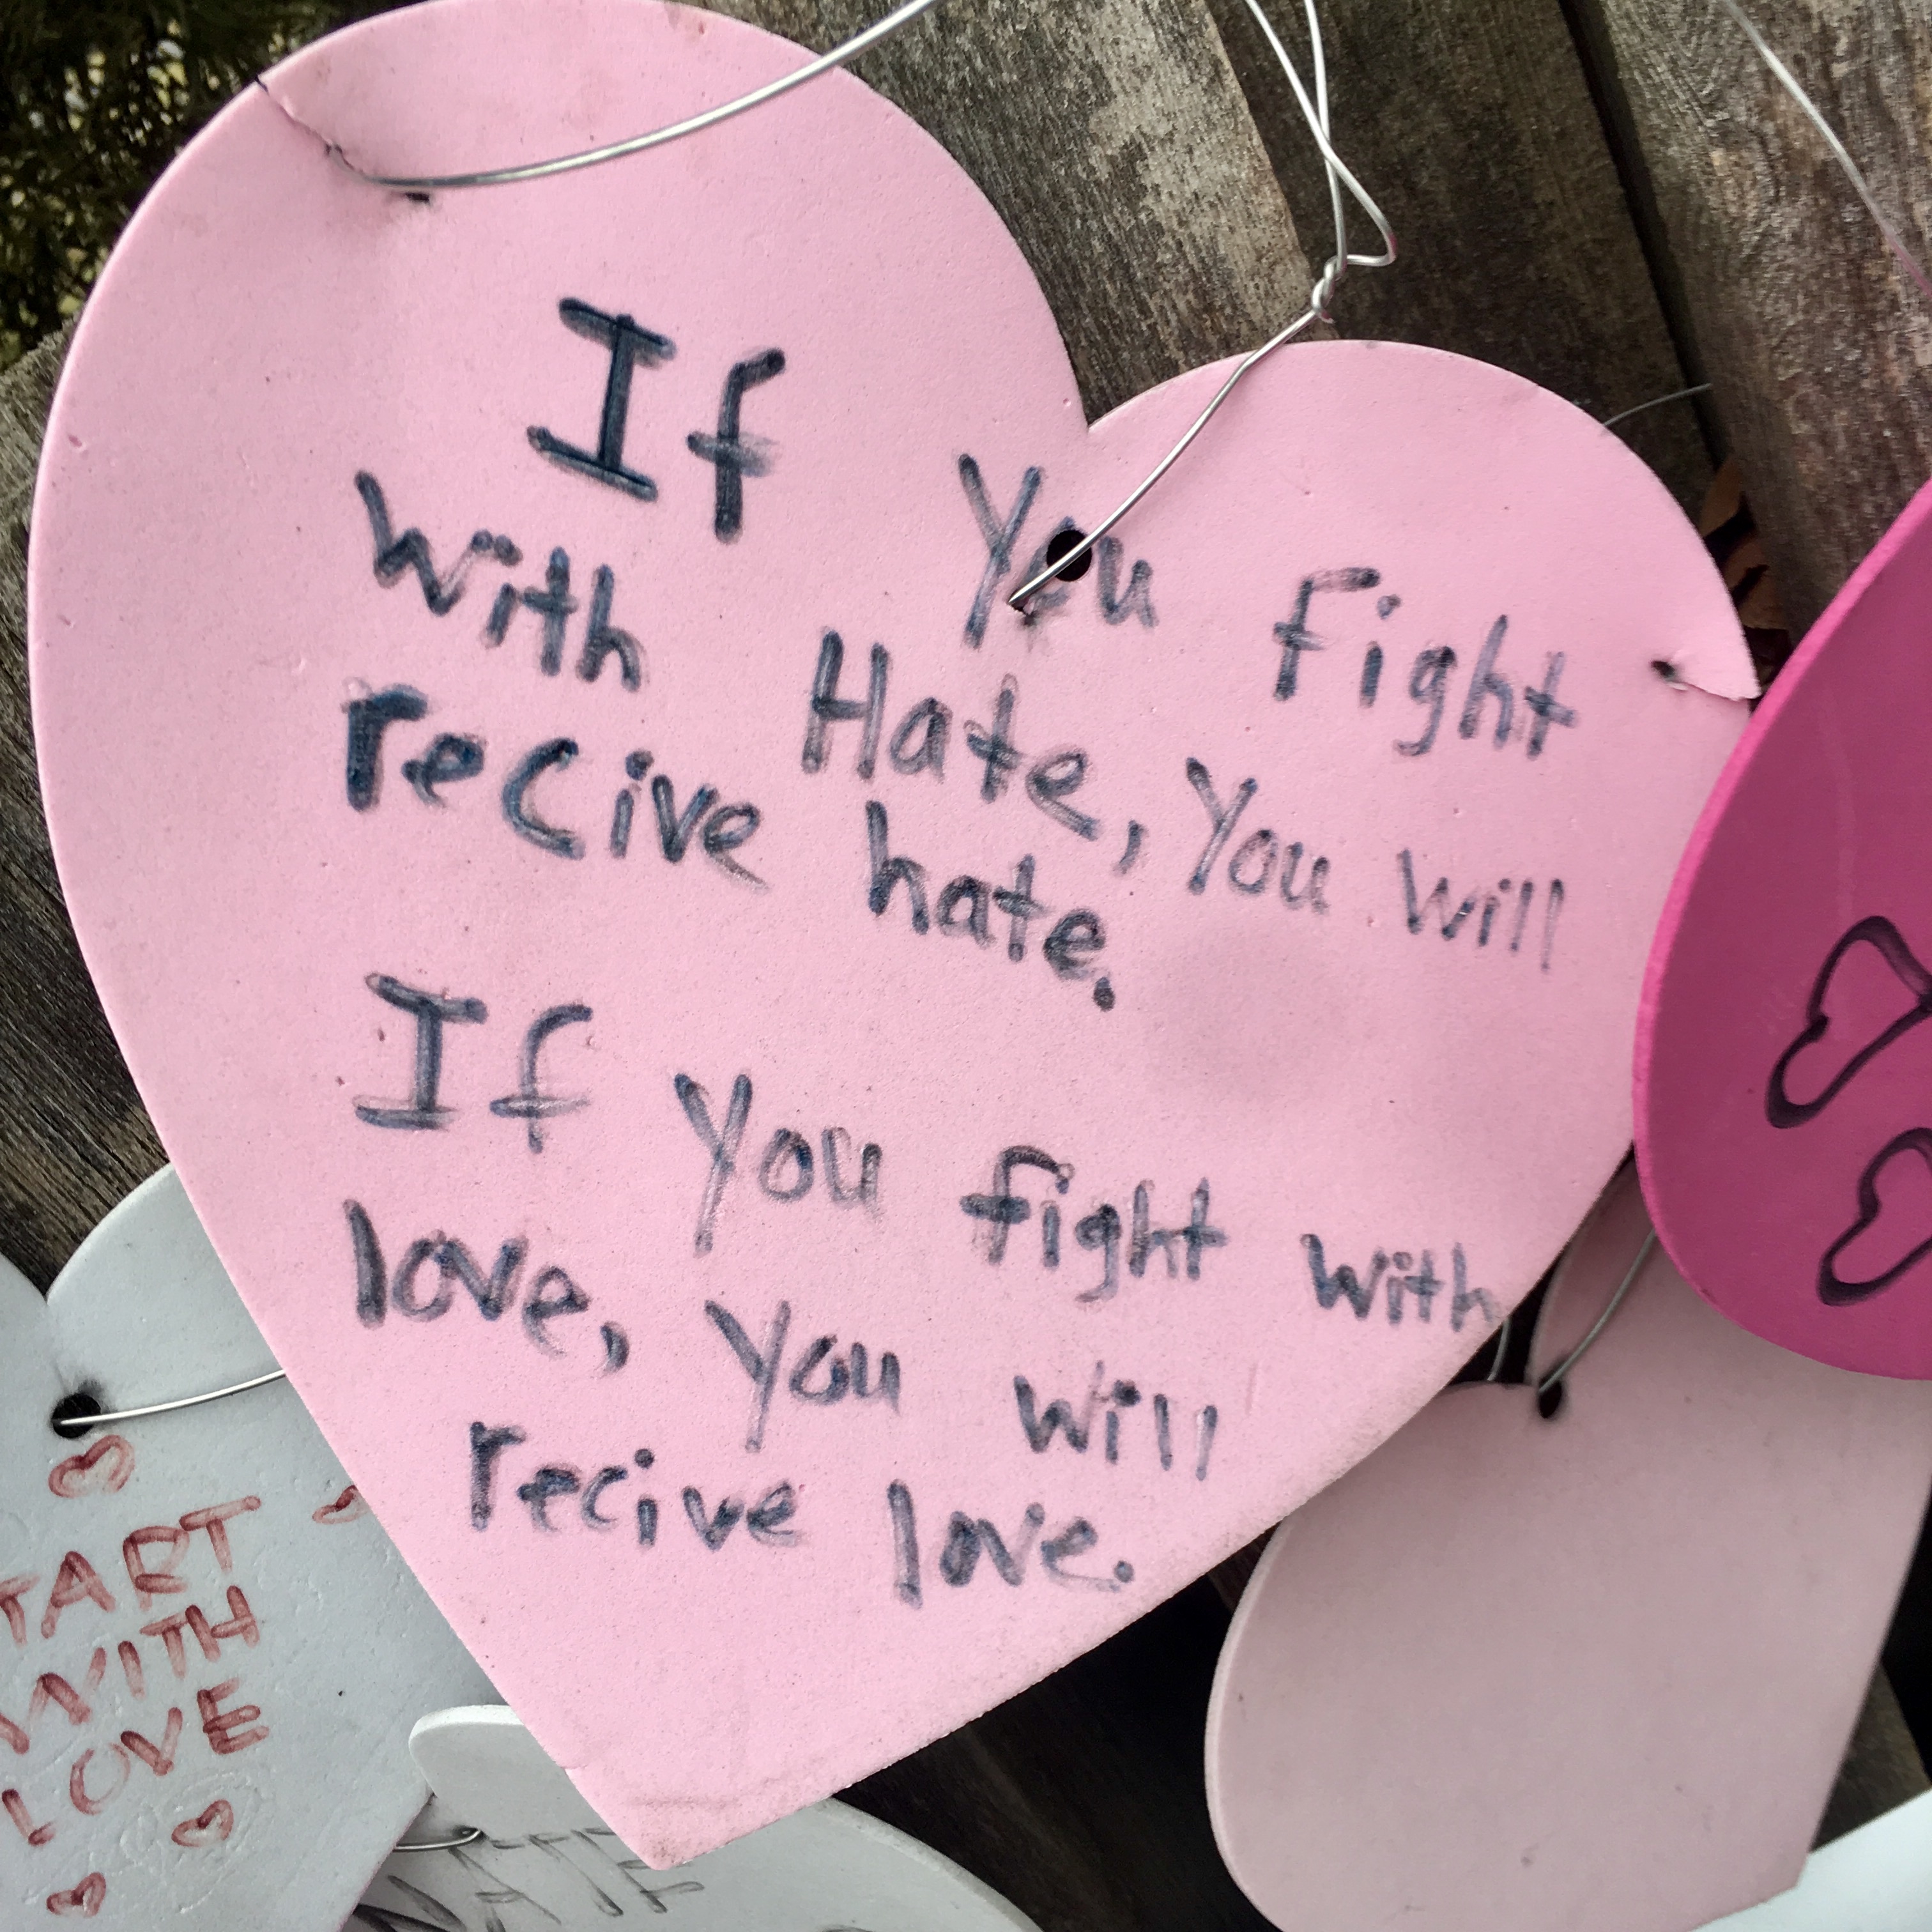 If you fight
with Hate, You will
recive hate.
If you fight with
love, you will
recive love.
TART
WITH
LOVE